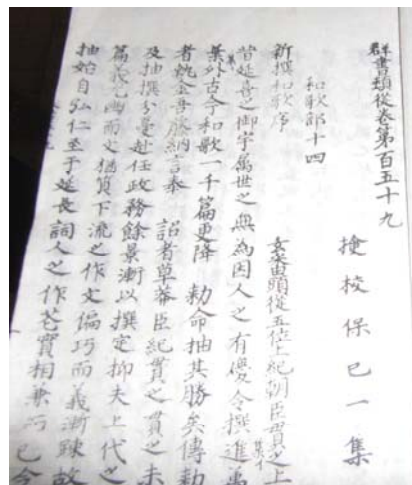 群書類從卷第百五十九
撿校保已一集
和歌部十四
新撰和歌序
玄蕃頭從五位上紀朝臣貫之上
昔延喜之御宇属世之無為因人之有慶令撰進萬
葉外古今和歌一千篇更降 勅命抽其勝矣傳勅
者執金吾藤納言奉 詔者草莽臣紀貫之貫之未
及抽撰分憂赴任政務餘景漸以撰定抑夫上代之
篇義尤幽而文猶質下流之作文偏巧而義漸踈故
抽始自弘仁至于延長詞人之作花實相兼